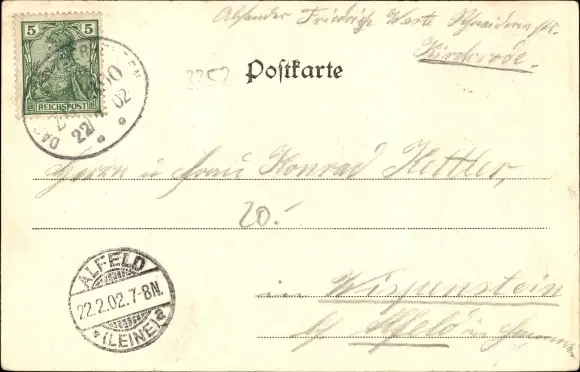 Absender Friedrich Schneiderm
Kirchrode.
5
REICHSPOST
22 02
2252
Postkarte
Herrn u Frau Konrad Kettler,
20.-
ALFELD
22.2.02.7-8N.
*(LEINE)a
in Wispenstein
b/ Alfeld